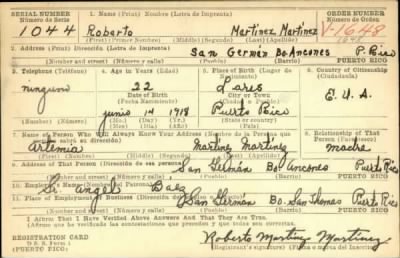 SERIAL NUMBER 1. Name (Print) Nombre (Letra de Imprenta) ORDER NUMBER
Número de Serie Número de Orden
1044 Roberto Martinez Martinez V-1648
(First) (Primer Nombre) (Middle) (Segundo) (Last) (Apellido) 1648
2. Address (Print) Dirección (Letra de Imprenta)
San Germán Bo Ancones P. Rico
(Number) (Número) (Street) (Calle) (Town) (Pueblo) PUERTO RICO
3. Telephone (Teléfono) 4. Age in Years (Edad) 5. Place of Birth (Lugar de Nacimiento) 6. Country of Citizenship (Ciudadanía)
ninguno 22 Lares E. U. A.
Date of Birth City or Town
(Fecha Nacimiento) (Ciudad o Pueblo)
junio 14 1918 Puerto Rico
(Mo.) (Day) (Yr.) (State or country)
7. Name of Person Who Will Always Know Your Address (Nombre de la Persona que siempre sabrá su dirección) 8. Relationship of That Person
Artemia Martinez Martinez madre
(First) (Middle) (Last)
9. Address of That Person (Dirección de esa persona)
San Germán Bo. Ancones Puerto Rico
(Number) (Número) (Street) (Calle) (Town) (Pueblo) PUERTO RICO
10. Employer's Name (Nombre del Patrono)
Sr. Angel Báez
11. Place of Employment or Business (Dirección del Empleo)
San Germán Puerto Rico
(Number) (Street) (Town) PUERTO RICO
I Affirm That I Have Verified Above Answers And That They Are True.
REGISTRATION CARD
D. S. S. Form 1
PUERTO RICO
Roberto Martinez Martinez
(Registrant's signature) (Firma o marca del Inscrito)